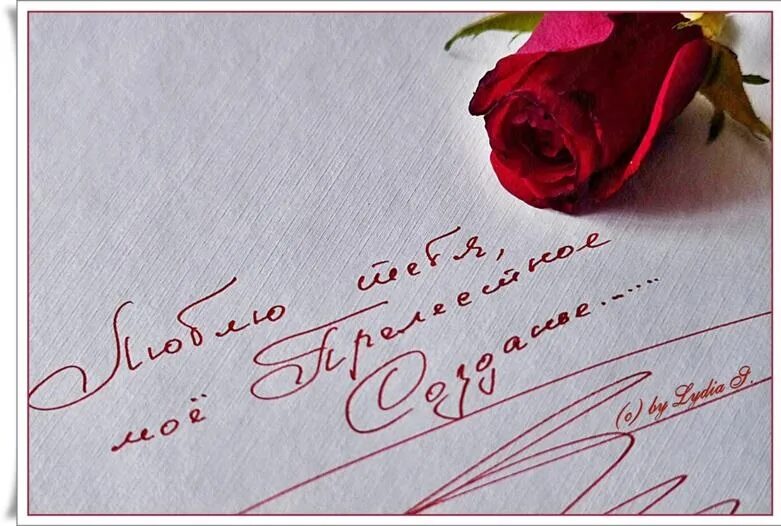 Люблю тебя,
моё Прелестное
Созданье........
(c) by Lydia S.